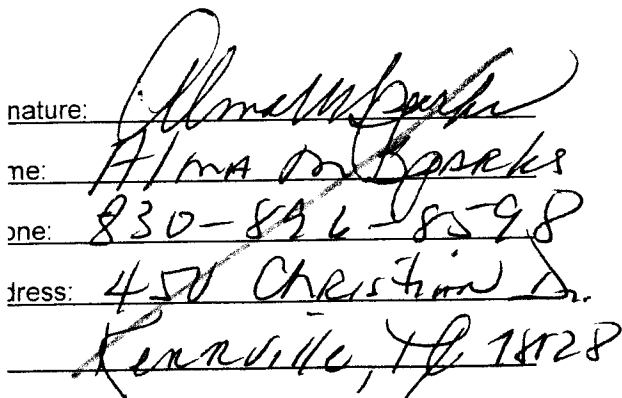 nature: Alma M Sparks
me: Alma M Sparks
one: 830-896-8598
dress: 450 Christian Dr.
Kerrville, TX 78028